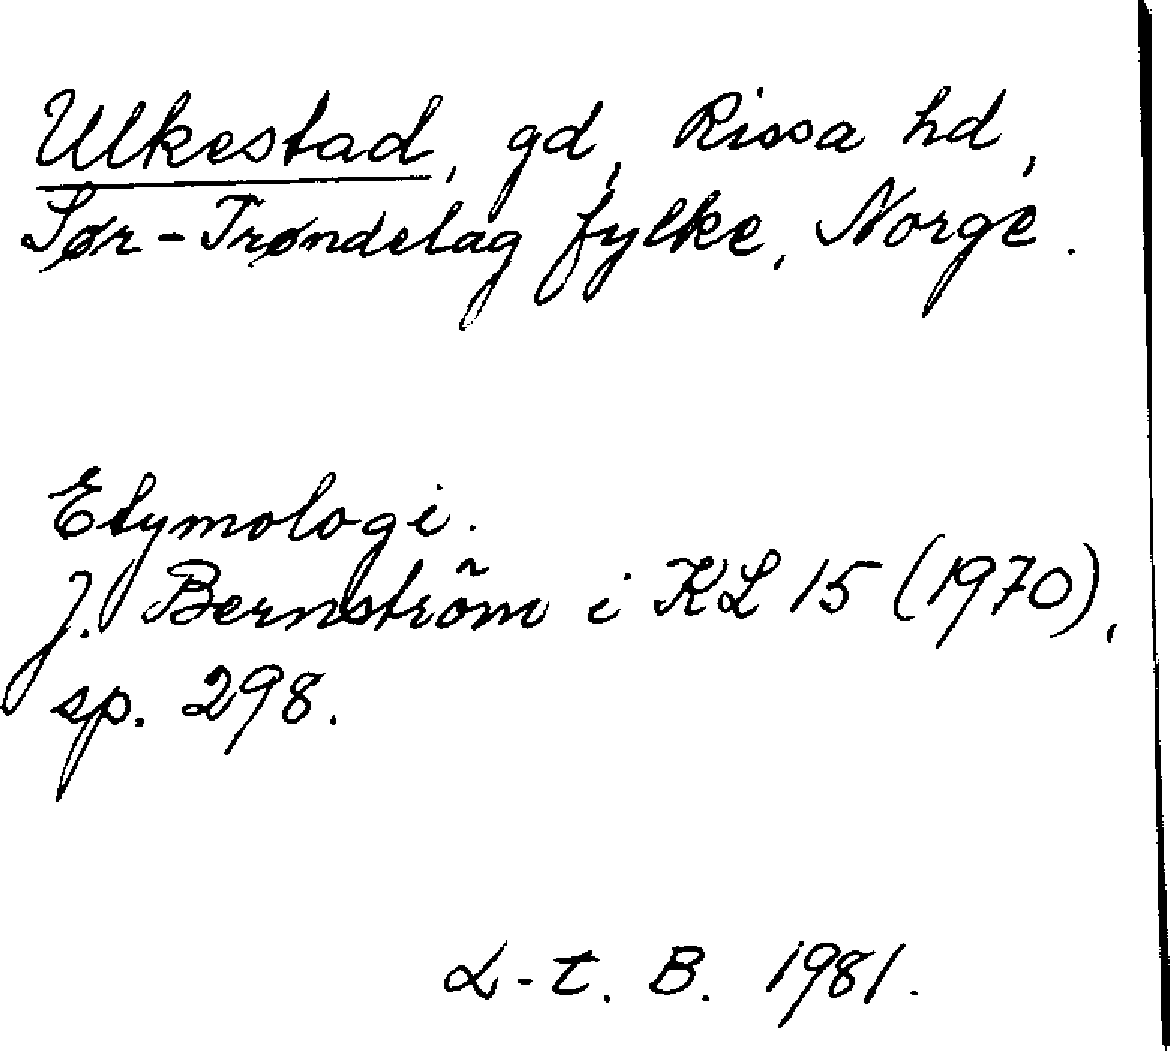 Ulkestad, gd, Rissa hd,
Sør-Trøndelag fylke, Norge.
Etymologi.
J. Bernström i KL 15 (1970),
sp. 298.
L-t. B. 1981.